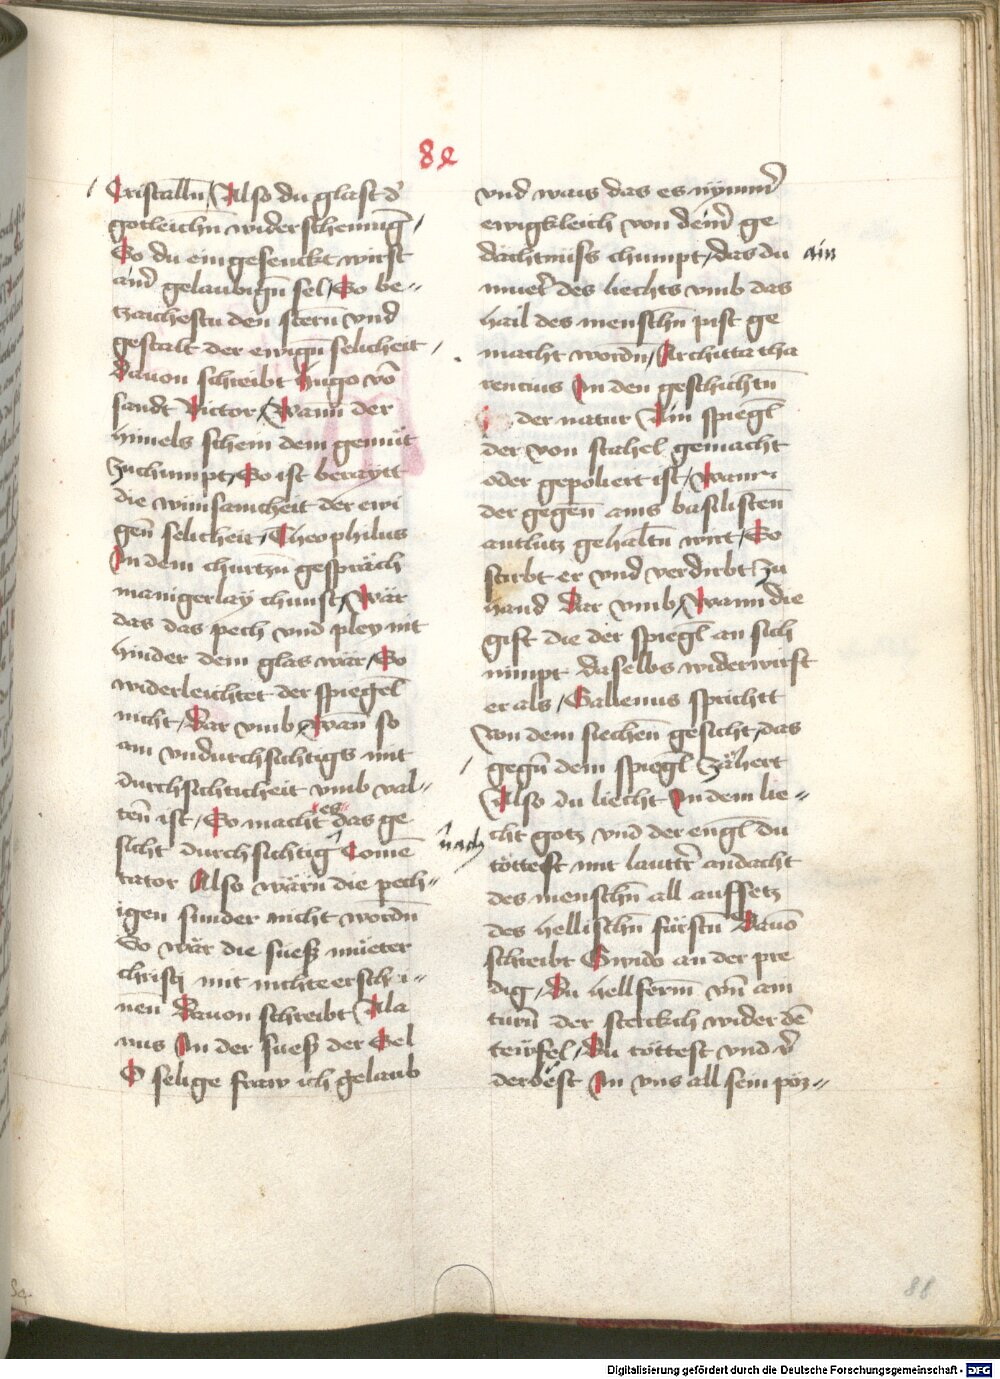 82
Cristalln̄ / Also du glast d̕
gotleichn̄ widerscheinūg /
So du ein gesenckt wirst
ainr̄ gelaubign̄ sel / So be=
tzaichestu den stern̄ vnd
gestalt der ewign̄ selicheit /
Dauon schreibt Hugo vō
sandt Victor / Wann der
himels schein dem gemüt
zuchumpt / So ist beraytt
die wunsamcheit der ewi
gen̄ selicheit / Theophilus
In dem churtzn̄ gespräch
manigerlay chunst / Wär
das das pech vnd pley nit
hinder dem glas wär / So
widerleichtet der spiegel̄
nicht / Dar vmb / Wan̄ so
ain vndurchsichtigs mit
durchsichticheit vmb val=
ten̄ ist / So macht es das ge
sicht durchsichtig Comē
tator Also wärn die pech=
igen sunder nicht wordn̄
So wär die suesz mueter
christi mit nichte erschi=
nen̄ Dauon schreibt Ala
nus In der suesz der Sel
O selige fraw ich gelaub
vnd wais das es nymmr̄
ewigkleich von deinr̄ ge
dächtnuss chumpt / das du ain
muetr̄ des liechts vmb das
hail des menschn̄ pist ge
macht wordn̄ / Architta tha
rencius In den geschichtn̄
der natur Ain spiegl̄
der von stahel gemacht
oder gepoliert ist / Wann
der gegen̄ ains basilisten̄
antlutz gehaltn̄ wirt / So
stirbt er vnd verdirbt zu
hand Dar vmb / Wann die
gift die der spiegl̄ an sich
nimpt daselbs widerwirft
er als / Galienus sprichtt
von dem siechen̄ gesicht / das
gegn̄ dem spiegl̄ zähert
Also du liecht In dem lie=
nach cht gotz vnd der engl̄ du
töttest mit lauttr̄ andacht
des menschn̄ all auffsetz
des hellischn̄ fürstn̄ Dauō
schreibt Gwido an der pre
dig / Du hellferin̄ vn̄ ain
turn̄ der sterckch wider dē
tewfel / Du töttest vnd v̄
derbest In vns all sein pöz=
88
Digitalisierung gefördert durch die Deutsche Forschungsgemeinschaft - DFG